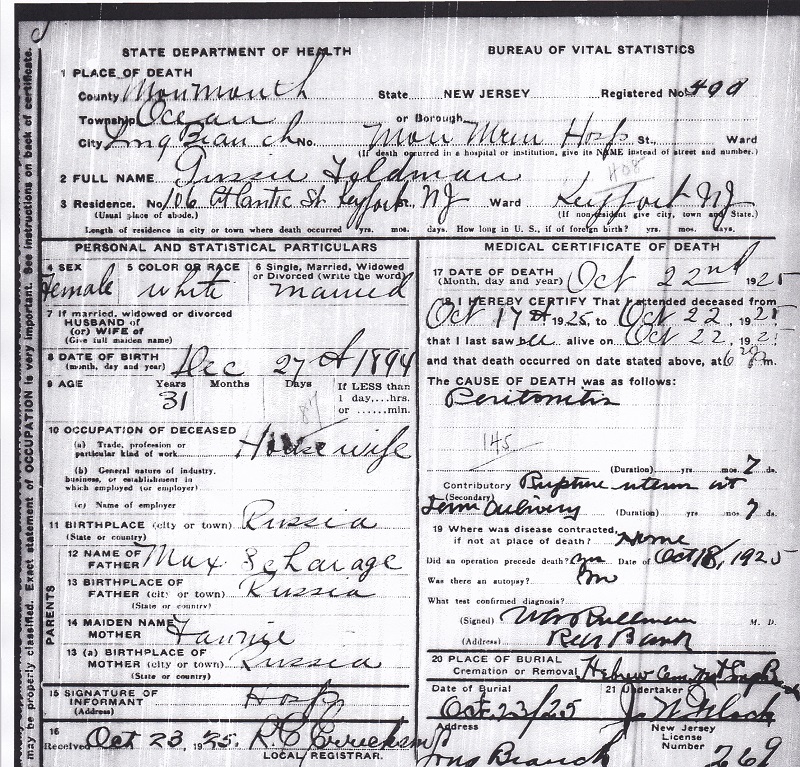 STATE DEPARTMENT OF HEALTH
BUREAU OF VITAL STATISTICS
may be properly classified. Exact statement of OCCUPATION is very important. See instructions on back of certificate.
1 PLACE OF DEATH
County Monmouth State NEW JERSEY Registered No. 498
Township Ocean or Borough
City Long Branch No. Mon Mem Hosp St., Ward
(If death occurred in a hospital or institution, give its NAME instead of street and number.)
408
2 FULL NAME Feldman
3 Residence. No. 106 Atlantic St Keyport, NJ Ward Keyport NJ
(Usual place of abode.) (If nonresident give city, town and State.)
Length of residence in city or town where death occurred yrs. mos. days. How long in U.S., if of foreign birth? yrs. mos. days.
PERSONAL AND STATISTICAL PARTICULARS
4 SEX 5 COLOR OR RACE 6 Single, Married, Widowed
or Divorced (write the word)
Female white married
7 If married, widowed or divorced
HUSBAND OF
(or) WIFE OF
(Give full maiden name)
8 DATE OF BIRTH
(month, day and year) Dec 27th 1894
9 AGE Years Months Days If LESS than
31 1 day,...hrs.
87 or ......min.
10 OCCUPATION OF DECEASED
(a) Trade, profession or
particular kind of work House wife
(b) General nature of industry,
business, or establishment in
which employed (or employer)
(c) Name of employer
11 BIRTHPLACE (city or town) Russia
(State or country)
PARENTS
12 NAME OF
FATHER Max Scharage
13 BIRTHPLACE OF
FATHER (city or town) Russia
(State or country)
14 MAIDEN NAME
MOTHER Fannie
13 (a) BIRTHPLACE OF
MOTHER (city or town) Russia
(State or country)
15 SIGNATURE OF
INFORMANT Hosp
(Address)
16
Received Oct 23, 1925.
LOCAL REGISTRAR.
MEDICAL CERTIFICATE OF DEATH
17 DATE OF DEATH
(Month, day and year) Oct 22nd 1925
18 I HEREBY CERTIFY That I attended deceased from
Oct 17th 1925, to Oct 22, 1925
that I last saw alive on Oct 22, 192
and that death occurred on date stated above, at m.
The CAUSE OF DEATH was as follows:
Peritonitis
145
(Duration) yrs. mos. 7 ds.
Contributory Rupture uterus at
(Secondary)
Term Delivery (Duration) yrs. mos. 7 ds.
19 Where was disease contracted,
if not at place of death? Home
Did an operation precede death? yes Date of Oct 18, 1925
Was there an autopsy? no
What test confirmed diagnosis?
(Signed) M. D.
(Address) Red Bank
20 PLACE OF BURIAL
Cremation or Removal Hebrew Cem
Date of Burial 21 Undertaker
Oct 23/25
Address New Jersey
License
Long Branch Number 269